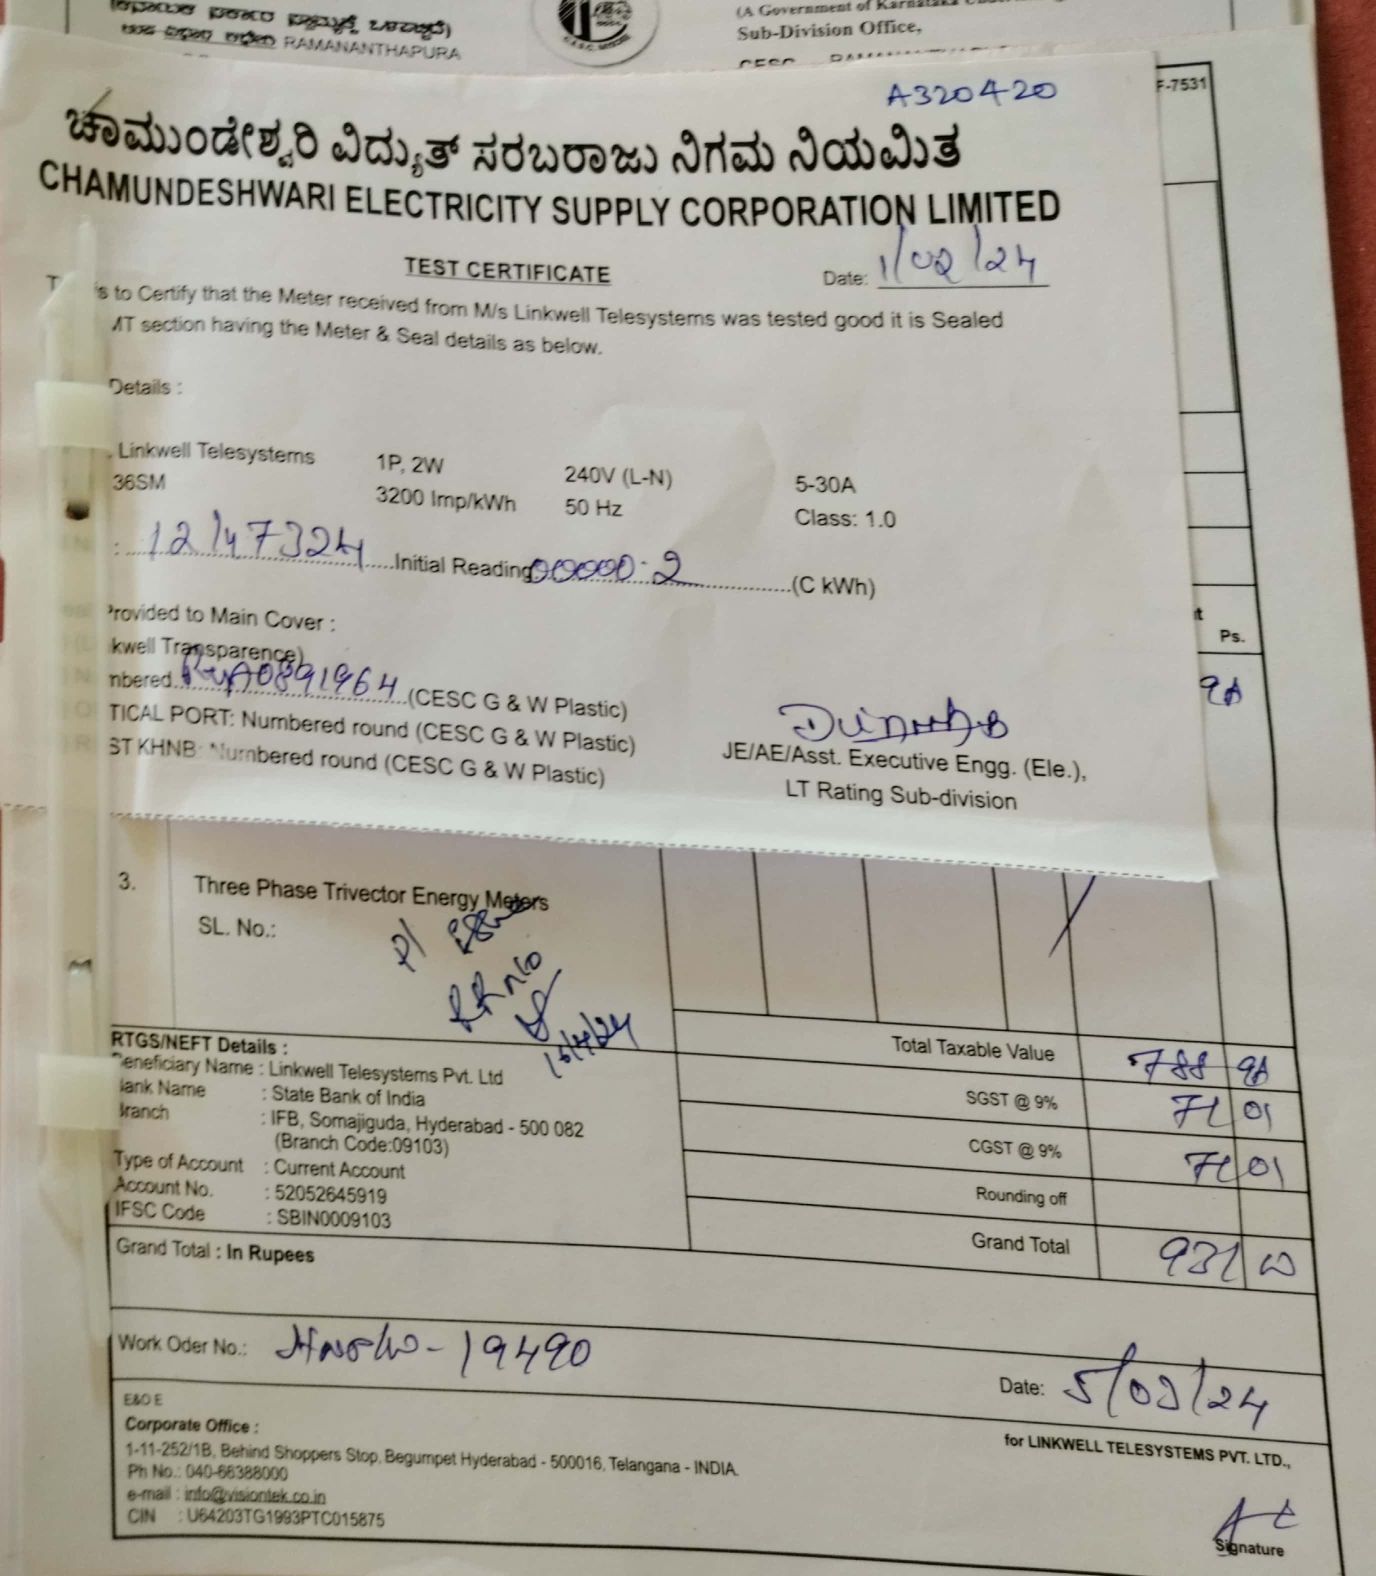 RAMANANTHAPURA
(A Government of Karnataka
Sub-Division Office,
F-7531
A320420
ಚಾಮುಂಡೇಶ್ವರಿ ವಿದ್ಯುತ್ ಸರಬರಾಜು ನಿಗಮ ನಿಯಮಿತ
CHAMUNDESHWARI ELECTRICITY SUPPLY CORPORATION LIMITED
TEST CERTIFICATE
Date: 1/02/24
to Certify that the Meter received from M/s Linkwell Telesystems was tested good it is Sealed
MT section having the Meter & Seal details as below.
Details :
Linkwell Telesystems 1P, 2W 240V (L-N) 5-30A
36SM 3200 Imp/kWh 50 Hz Class: 1.0
: 12147324 Initial Reading 00000.2 (C kWh)
Provided to Main Cover :
kwell Transparence)
mbered (CESC G & W Plastic)
TICAL PORT: Numbered round (CESC G & W Plastic)
ST KHNB: Numbered round (CESC G & W Plastic)
JE/AE/Asst. Executive Engg. (Ele.),
LT Rating Sub-division
Ps.
3. Three Phase Trivector Energy Meters
SL. No.:
RTGS/NEFT Details :
Beneficiary Name : Linkwell Telesystems Pvt. Ltd
Bank Name : State Bank of India
Branch : IFB, Somajiguda, Hyderabad - 500 082
(Branch Code:09103)
Type of Account : Current Account
Account No. : 52052645919
IFSC Code : SBIN0009103
Total Taxable Value 788
SGST @ 9% 71 01
CGST @ 9% 71 01
Rounding off
Grand Total 931
Grand Total : In Rupees
Work Oder No.: 19490
Date: 5/03/24
E&O E
Corporate Office :
1-11-252/1B, Behind Shoppers Stop, Begumpet Hyderabad - 500016, Telangana - INDIA.
Ph No.: 040-66388000
e-mail : info@visiontek.co.in
CIN : U64203TG1993PTC015875
for LINKWELL TELESYSTEMS PVT. LTD.,
Signature